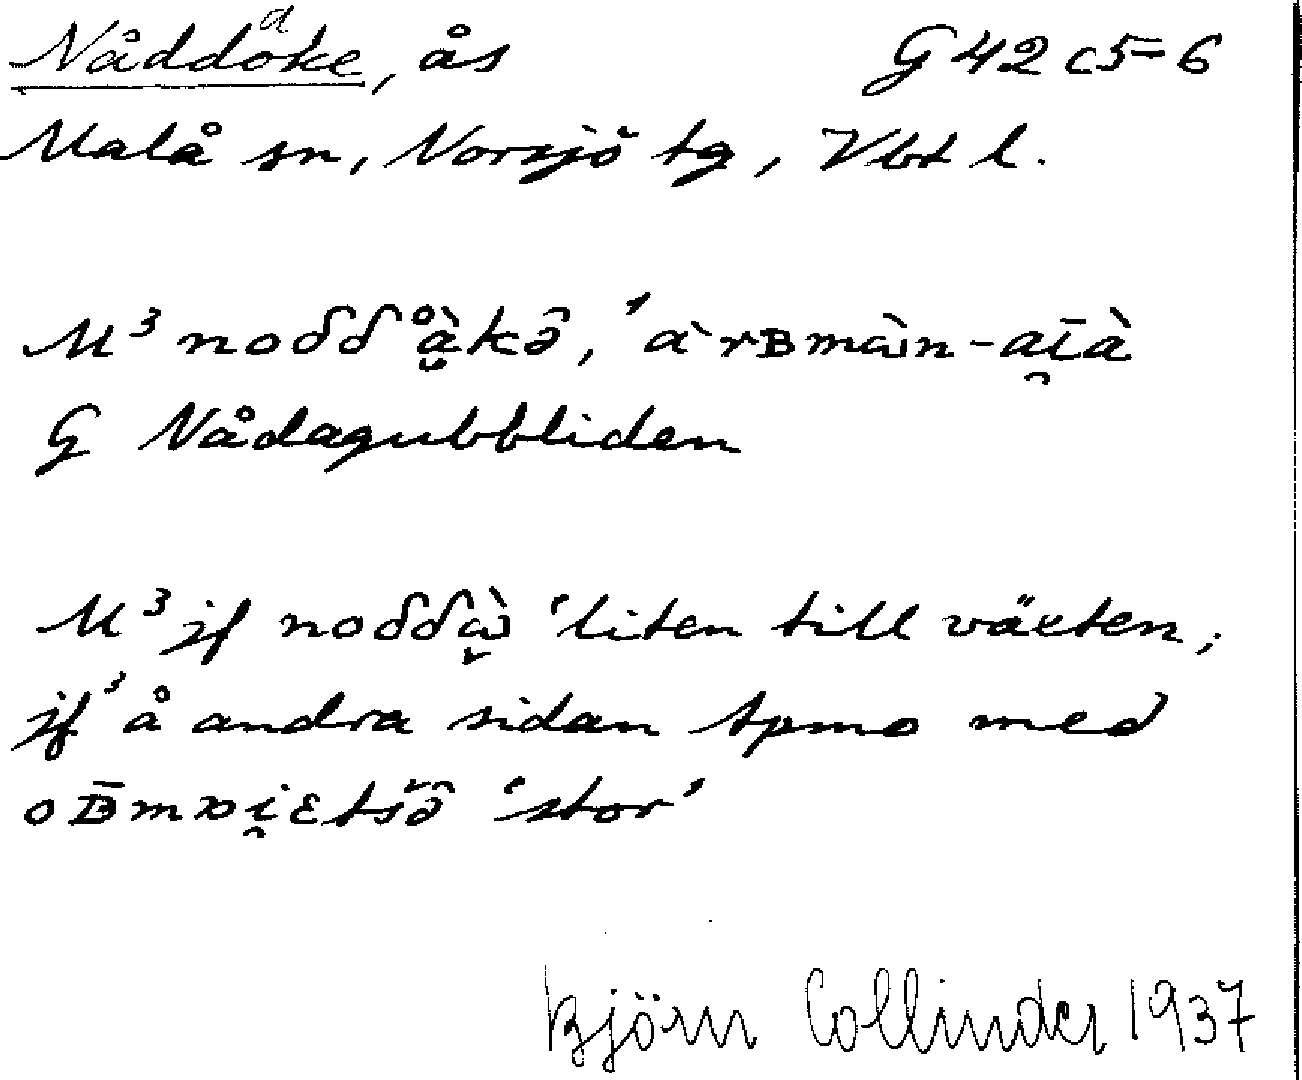 Nåddoke, ås G 42 c5-6
Malå sn, Norsjö tg, Vbt l.
M³ noδδå̀kə̑, 'àrʙmàn-aīà
G Nådagubbliden
M³ jf noδδà 'liten till växten,
jf' å andra sidan spmo med
oʙ̄mᴅi̯ɛtšə̑ 'stor'
Björn Collinder 1937